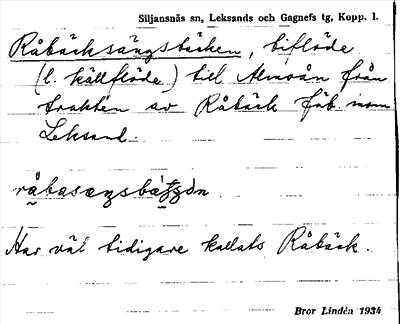 Siljansnäs sn, Leksands och Gagnefs tg, Kopp. l.
Råbäcksängsbäcken, biflöde
(l. källflöde) till Almoån från
trakten av Råbäck fäb. inom
Leksand.
Har väl tidigare kallats Råbäck.
Bror Lindén 1934